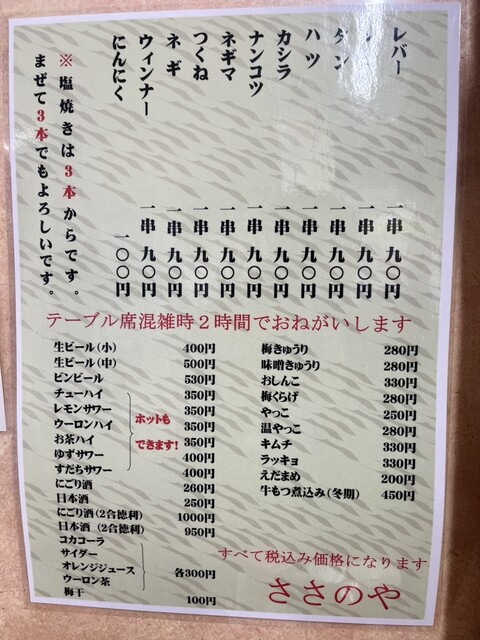 レバー 一串 九〇円
一串 九〇円
タン 一串 九〇円
ハツ 一串 九〇円
カシラ 一串 九〇円
ナンコツ 一串 九〇円
ネギマ 一串 九〇円
つくね 一串 九〇円
ネギ 一串 九〇円
ウィンナー 一串 九〇円
にんにく 一〇〇円
※塩焼きは3本からです。
まぜて3本でもよろしいです。
テーブル席混雑時2時間でおねがいします
生ビール(小) 400円
生ビール(中) 500円
ビンビール 530円
チューハイ 350円
レモンサワー 350円
ウーロンハイ 350円
お茶ハイ 350円
ゆずサワー 400円
すだちサワー 400円
ホットも
できます!
にごり酒 260円
日本酒 250円
にごり酒(2合徳利) 1000円
日本酒(2合徳利) 950円
コカコーラ
サイダー
オレンジジュース 各300円
ウーロン茶
梅干 100円
梅きゅうり 280円
味噌きゅうり 280円
おしんこ 330円
梅くらげ 280円
やっこ 250円
温やっこ 280円
キムチ 330円
ラッキョ 330円
えだまめ 200円
牛もつ煮込み(冬期) 450円
すべて税込み価格になります
ささのや